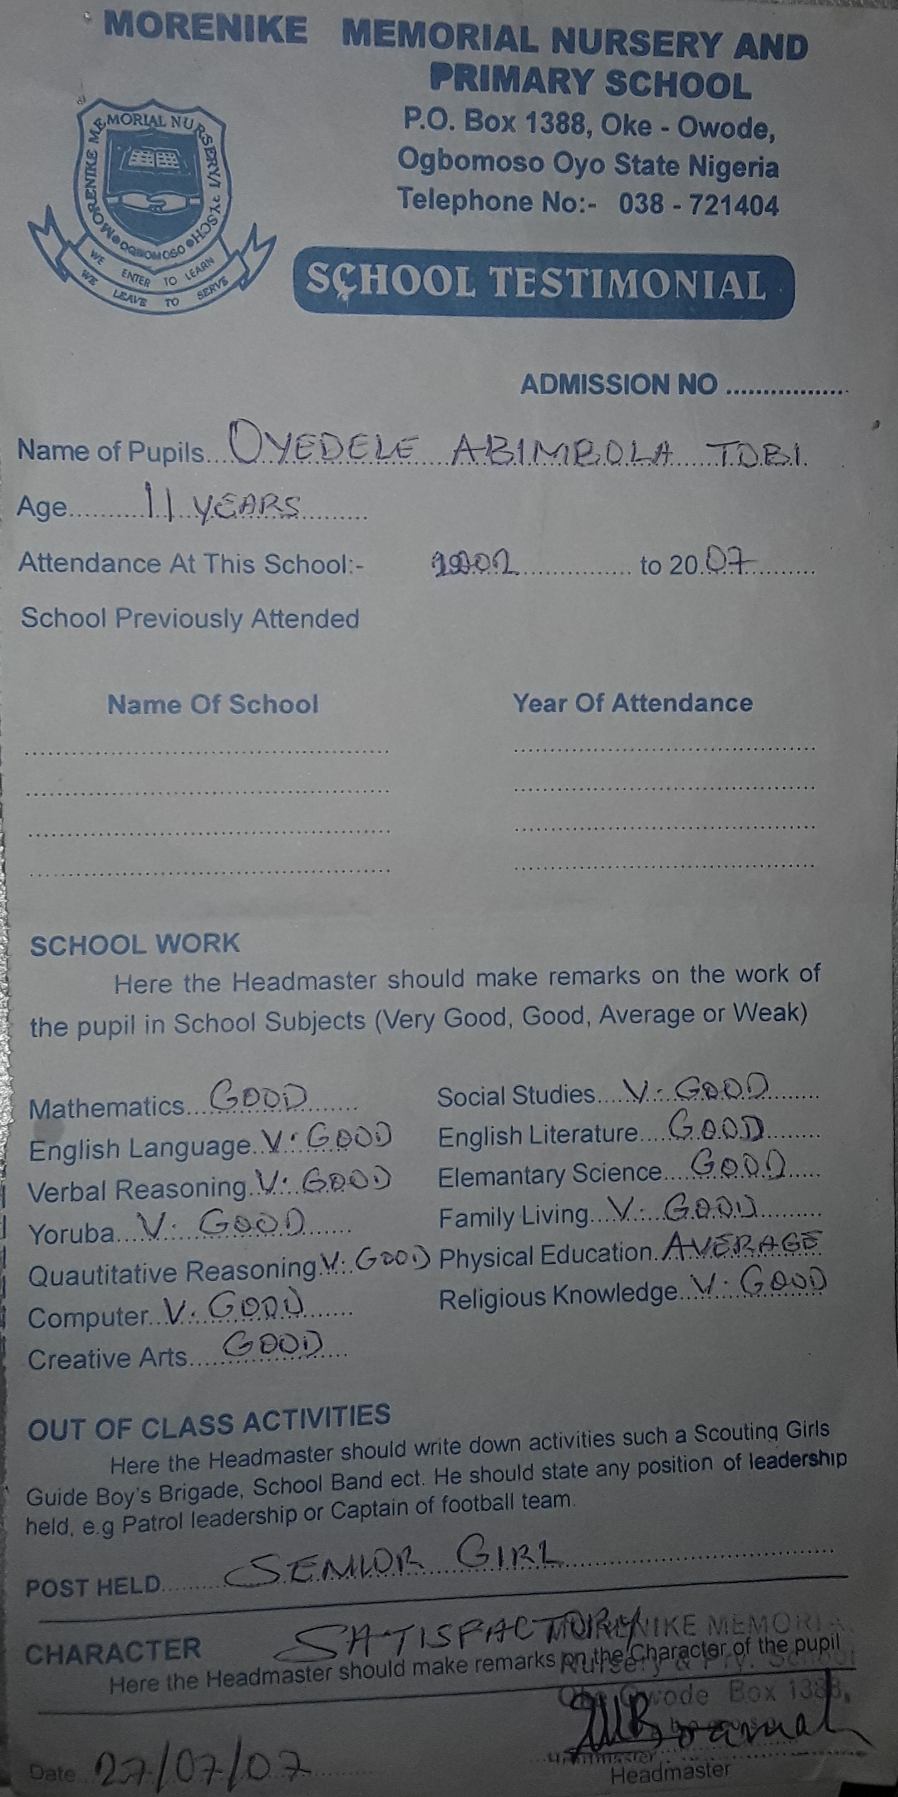 MORENIKE MEMORIAL NURSERY AND
PRIMARY SCHOOL
P.O. Box 1388, Oke - Owode,
Ogbomoso Oyo State Nigeria
Telephone No:- 038 - 721404
MORENIKE MEMORIAL NURSERY/P'RY.SCH OGBOMOSO
WE ENTER TO LEARN
WE LEAVE TO SERVE
SCHOOL TESTIMONIAL
ADMISSION NO ................
Name of Pupils...OYEDELE ABIMBOLA TOBI.
Age.........11 YEARS.........
Attendance At This School:- .............. to 20.07.........
School Previously Attended
Name Of School Year Of Attendance
SCHOOL WORK
Here the Headmaster should make remarks on the work of
the pupil in School Subjects (Very Good, Good, Average or Weak)
Mathematics...GOOD...... Social Studies...V. GOOD......
English Language..V. GOOD English Literature....GOOD......
Verbal Reasoning.V. GOOD Elemantary Science...GOOD....
Yoruba...V. GOOD...... Family Living...V. GOOD.......
Quautitative Reasoning.V. GOOD Physical Education.AVERAGE
Computer..V. GOOD...... Religious Knowledge..V. GOOD
Creative Arts.....GOOD...
OUT OF CLASS ACTIVITIES
Here the Headmaster should write down activities such a Scouting Girls
Guide Boy's Brigade, School Band ect. He should state any position of leadership
held, e.g Patrol leadership or Captain of football team.
POST HELD........SENIOR GIRL.......................
CHARACTER SATISFACTORY
MORENIKE MEMORIAL
Here the Headmaster should make remarks on the Character of the pupil
Nursery & Pry. School
Oke Owode Box 1388,
Headmaster
Date 27/07/07
Headmaster